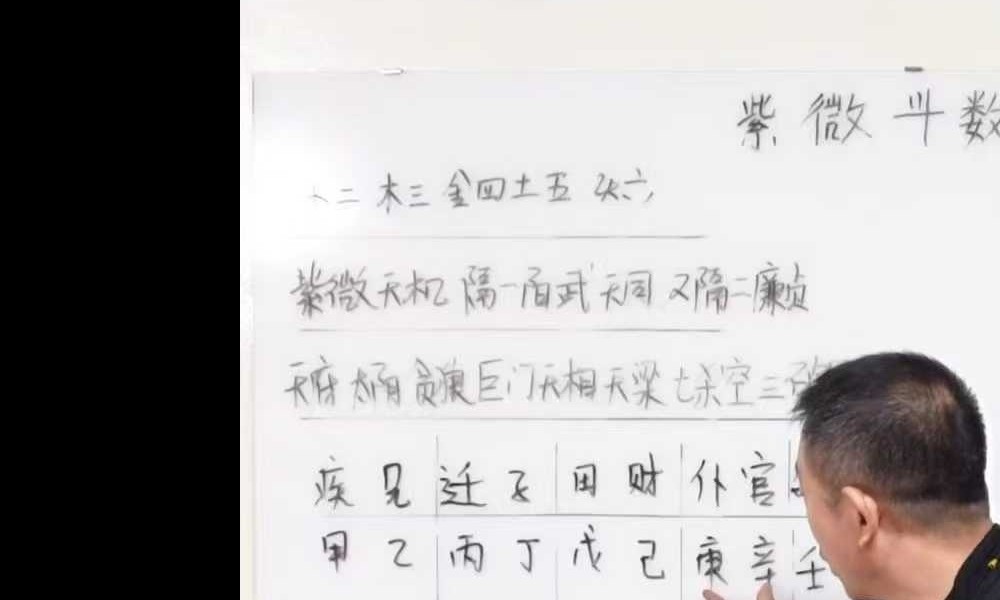 紫微斗数
二 木三 金四土五 火六
紫微天机 隔一阳武天同 又隔二廉贞
天府 太阴 贪狼巨门天相天梁七杀空三
疾 兄 迁 子 田 财 仆 官
甲 乙 丙 丁 戊 己 庚 辛 壬